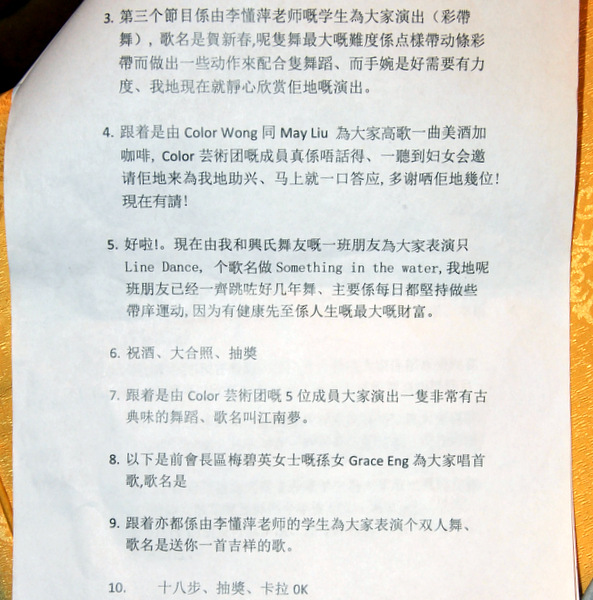 3. 第三个節目係由李懂萍老师嘅学生為大家演出（彩帶
舞）, 歌名是賀新春,呢隻舞最大嘅難度係点樣带动条彩
帶而做出一些动作來配合隻舞蹈、而手婉是好需要有力
度、我地現在就靜心欣赏佢地嘅演出。
4. 跟着是由 Color Wong 同 May Liu 為大家高歌一曲美酒加
咖啡, Color 芸術团嘅成員真係唔話得、一聽到妇女会邀
请佢地来為我地助兴、马上就一口答应, 多谢哂佢地幾位!
現在有請!
5. 好啦!。現在由我和興氏舞友嘅一班朋友為大家表演只
Line Dance, 个歌名做 Something in the water,我地呢
班朋友已经一齊跳咗好几年舞、主要係每日都堅持做些
帶庠运动,因为有健康先至係人生嘅最大嘅財富。
6. 祝酒、大合照、抽獎
7. 跟着是由 Color 芸術团嘅 5 位成員大家演出一隻非常有古
典味的舞蹈、歌名叫江南夢。
8. 以下是前會長區梅碧英女士嘅孫女 Grace Eng 為大家唱首
歌,歌名是
9. 跟着亦都係由李懂萍老师的学生為大家表演个双人舞、
歌名是送你一首吉祥的歌。
10. 十八步、抽獎、卡拉 OK